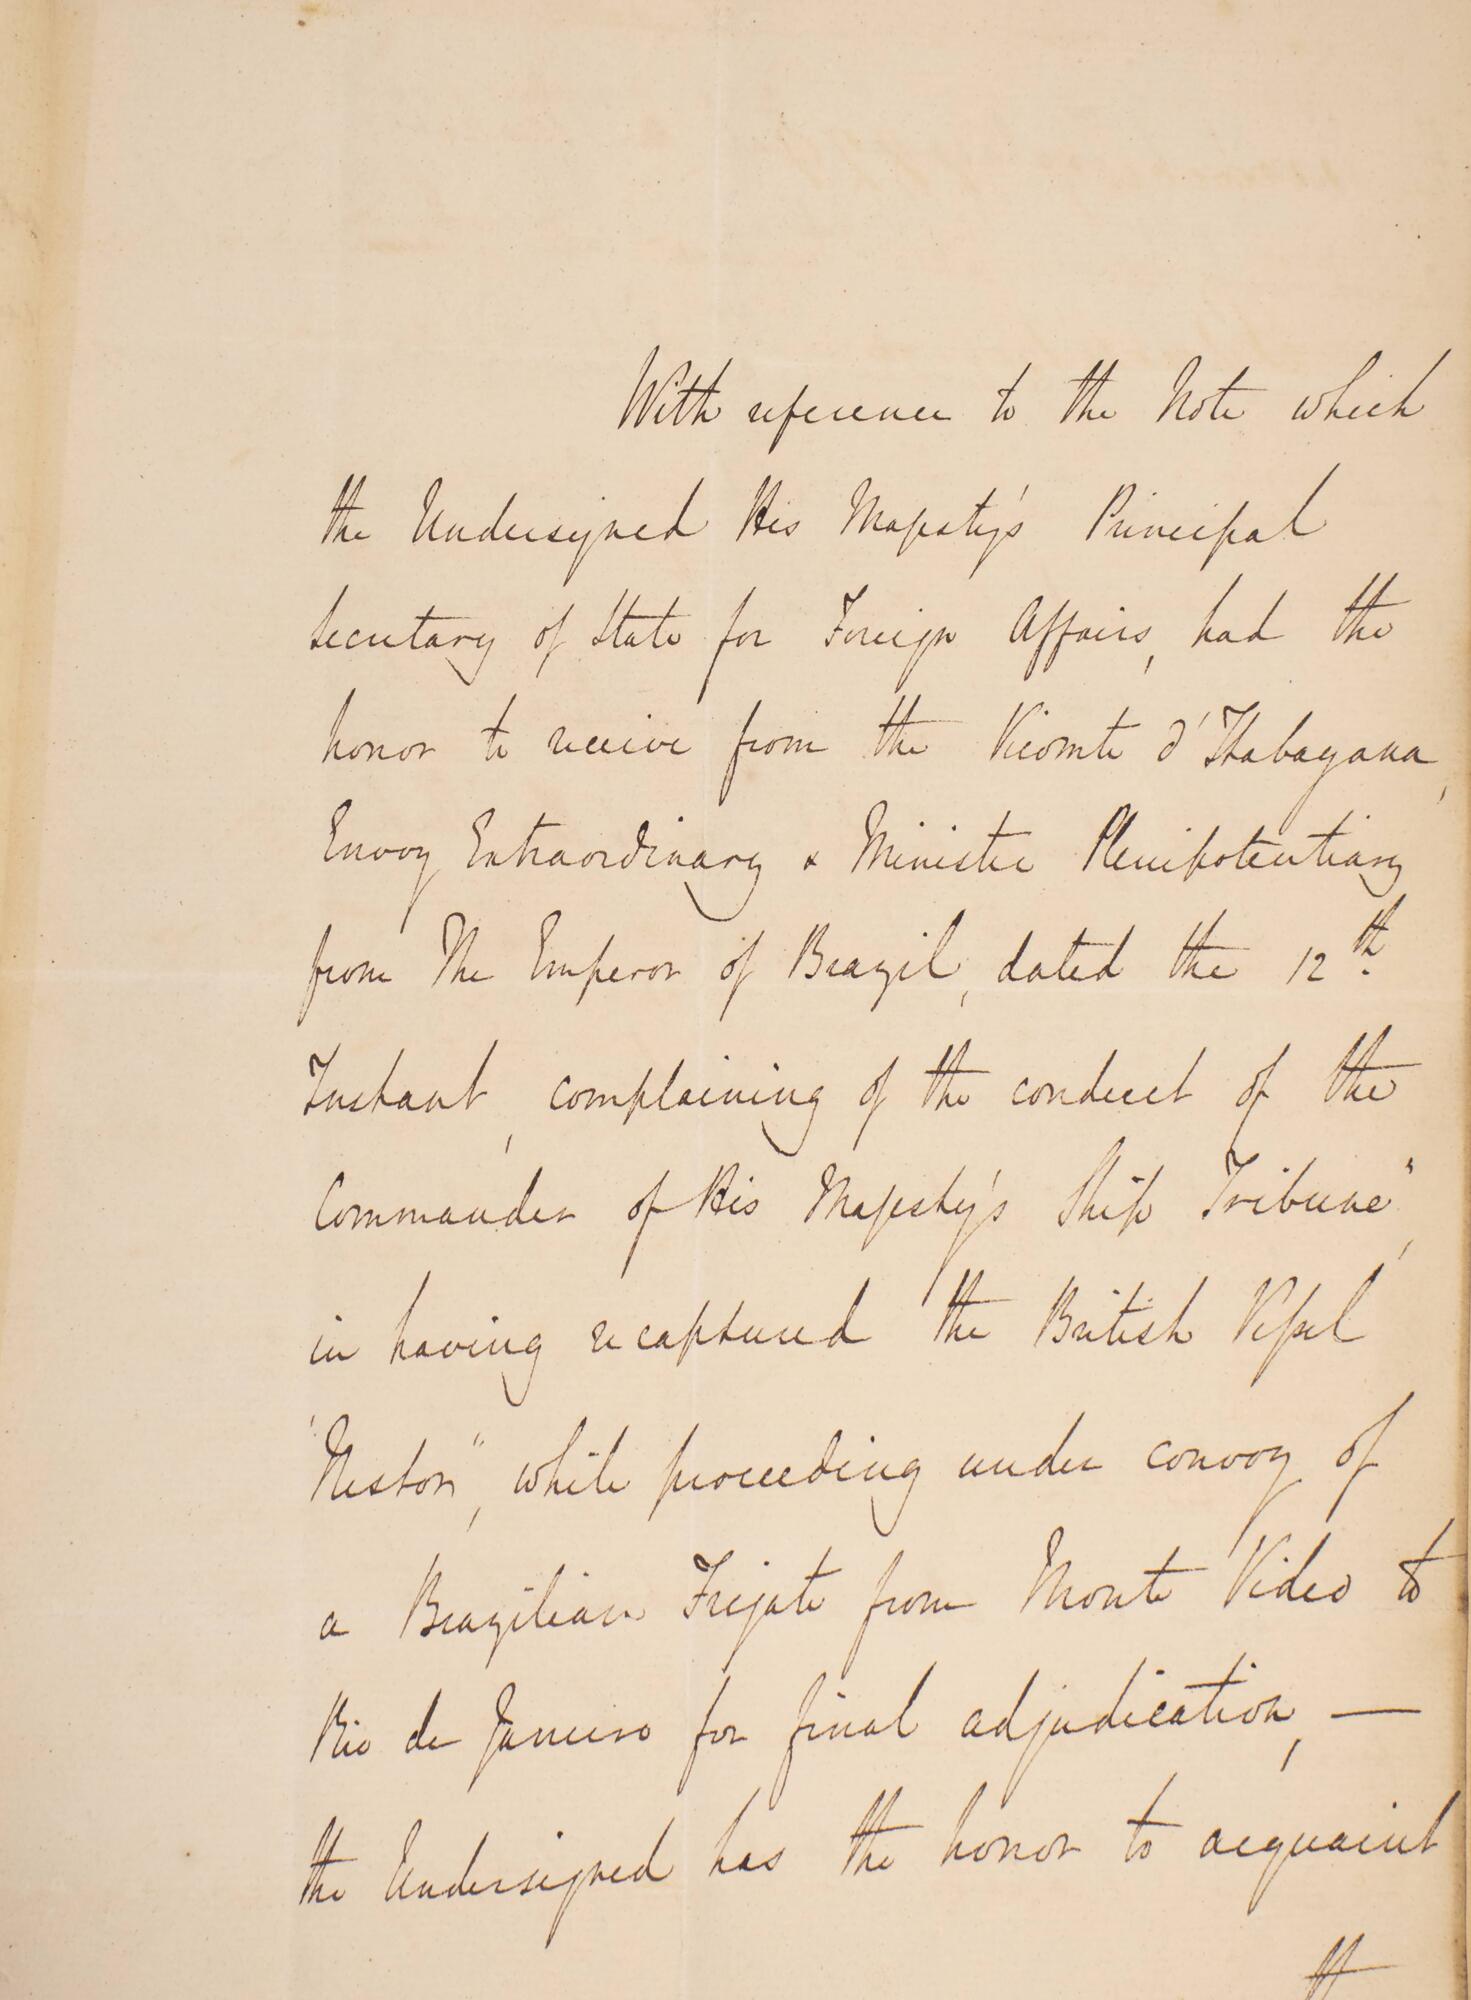 With reference to the Note which
the Undersigned His Majesty's Principal
Secretary of State for Foreign Affairs, had the
honor to receive from the Vicomte d'Itabayana,
Envoy Extraordinary & Minister Plenipotentiary
from The Emperor of Brazil, dated the 12th.
Instant, complaining of the conduct of the
Commander of His Majesty's Ship Tribune",
in having recaptured the British Vessel
"Nestor", while proceeding under convoy of
a Brazilian Frigate from Monte Video to
Rio de Janeiro for final adjudication, —
the Undersigned has the honor to acquaint